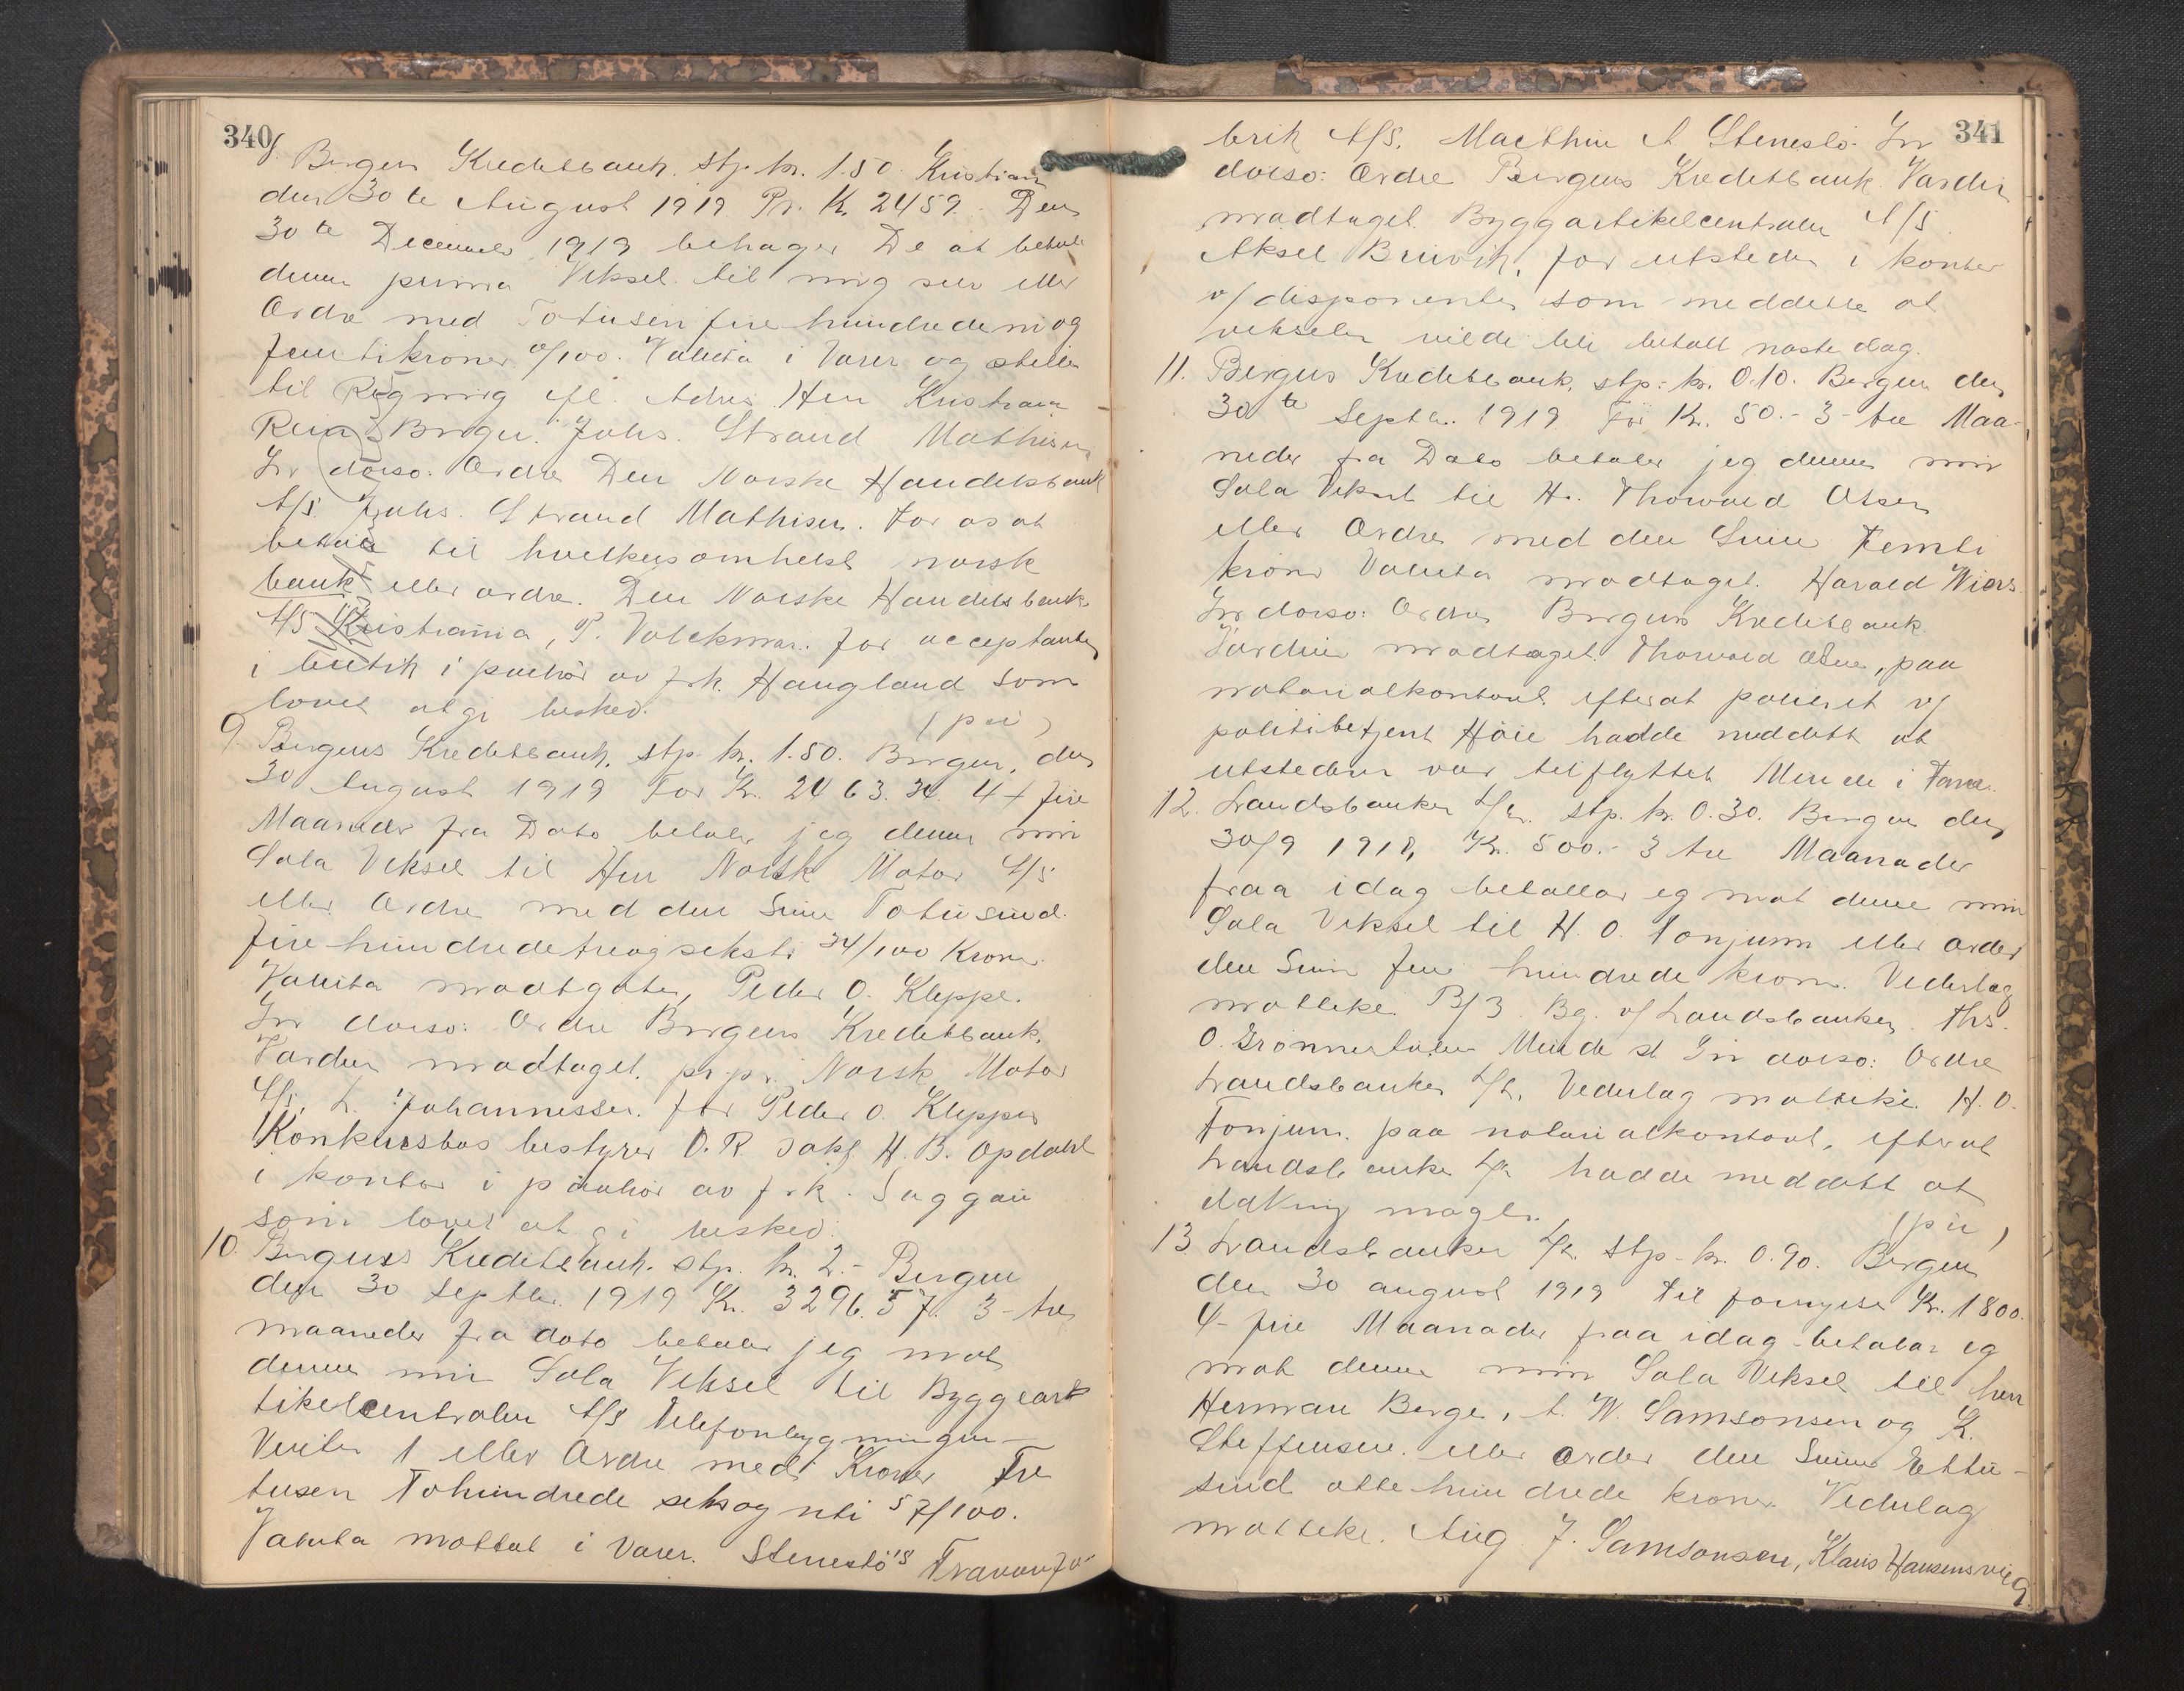 340
8 Bergens Kreditbank. stp. kr. 1.50 Kristiania
den 30te August 1919 Pr. K. 2459.- Den
30te December 1919 behager De at betale
denne prima Veksel til mig selv eller
Ordre med Totusen fire hundrede ni og
femti kroner 0/100. Valuta i Varer og stilles
til Regning efl. Adres Herr Kristian
Bergen. Johs. Strand Mathisen
In dorso: Ordre Den Norske Handelsbank
A/S. Johs. Strand Mathisen. For os at
betale til hvilkensomhelst norsk
bank eller ordre. Den Norske Handelsbank
A/S Kristiania, P. Volckmar. for acceptanten
i butik i paahør av frk. Haugland som
lovet at gi besked.
(pri)
9 Bergens Kreditbank. stp. kr. 1.50. Bergen, den
30 August 1919 For Kr. 2463.34. 4 + fire
Maaneder fra Dato betaler jeg denne min
Sola Veksel til Herr Norsk Motor A/S
eller Ordre med den Sum Totusind
fire hundrede treogseksti 34/100 Kroner.
Valuta modtat, Peder O. Kleppe.
In dorso: Ordre Bergens Kreditbank.
Værdien modtaget. pr. pr. Norsk Motor
A/S. L. Johannessen. for Peder O. Kleppes
Konkursbos bestyrer O.R. sakf. H. B. Opdahl
i kontor i paahør av frk. Saggau
som lovet at gi besked.
10. Bergens Kreditbank. stp. kr. 2.- Bergen
den 30 Septbr. 1919 Kr. 3296.57. 3 - tre
maaneder fra dato betaler jeg mot
denne min Sola Veksel til Byggeart
tikelcentralen A/S Telefonbygningen-
Veiten 1 eller Ordre med Kroner Tre
tusen Tohundrede seksog nti 57/100.
Valuta mottat i Varer. Stenestö's Travarefa-
341
brik A/S. Matthin A Stenestö. In
dorso: Ordre Bergens Kreditbank. Værdien
modtaget. Byggartikelcentralen A/S
Aksel Bruvik, for utsteder i kontor
v/ disponenten som meddelte at
vekselen vilde bli betalt næste dag.
11. Bergens Kreditbank. stp. kr. 0.10. Bergen den
30te Septbr. 1919. For Kr. 50.- 3 - tre Maa-
neder fra Dato betaler jeg denne min
Sola Veksel til Hr. Thorvald Olsen
eller Ordre med den Sum Femti
kroner Valuta modtaget. Harald Wiers
In dorso: Ordre Bergens Kreditbank
Værdien modtaget. Thorvald Olsen, paa
notarialkontoret efterat politiet v/
politibetjent Høie hadde meddelt at
utstederen var tilflyttet Minde i Fana.
12. Landsbanken A/L. stp. kr. 0.30. Bergen den
30/9 1919, Kr. 500.- 3 tre Maanader
fraa idag betallar eg mot denne min
Sola Veksel til H. O. Tonjum eller order
den Sum fem hundrede kroner. Vederlag
motteke. B/3. Bg. v/ Landsbanken, Ths.
O. Grønnerdalen Minde st In dorso: Ordre
Landsbanken A/L, Vederlag motteke. H. O.
Tonjum. paa notarialkontoret, efterat
Landsbanken A/L hadde meddelt at
dækning mangler.
(pri)
13 Landsbanken A/L. stp. kr. 0.90. Bergen
den 30 august 1919 til fornyelse Kr. 1800.
4- fire Maanader fraa idag betalar eg
mot denne min Sola Veksel til herr
Herman Berge, A. W. Samsonsen og K.
Steffensen. eller order den Summ Ettu-
sind otte hundrede kroner. Vederlag
motteke. Aug J. Samsonsen, Klaus Hansensvei 9.